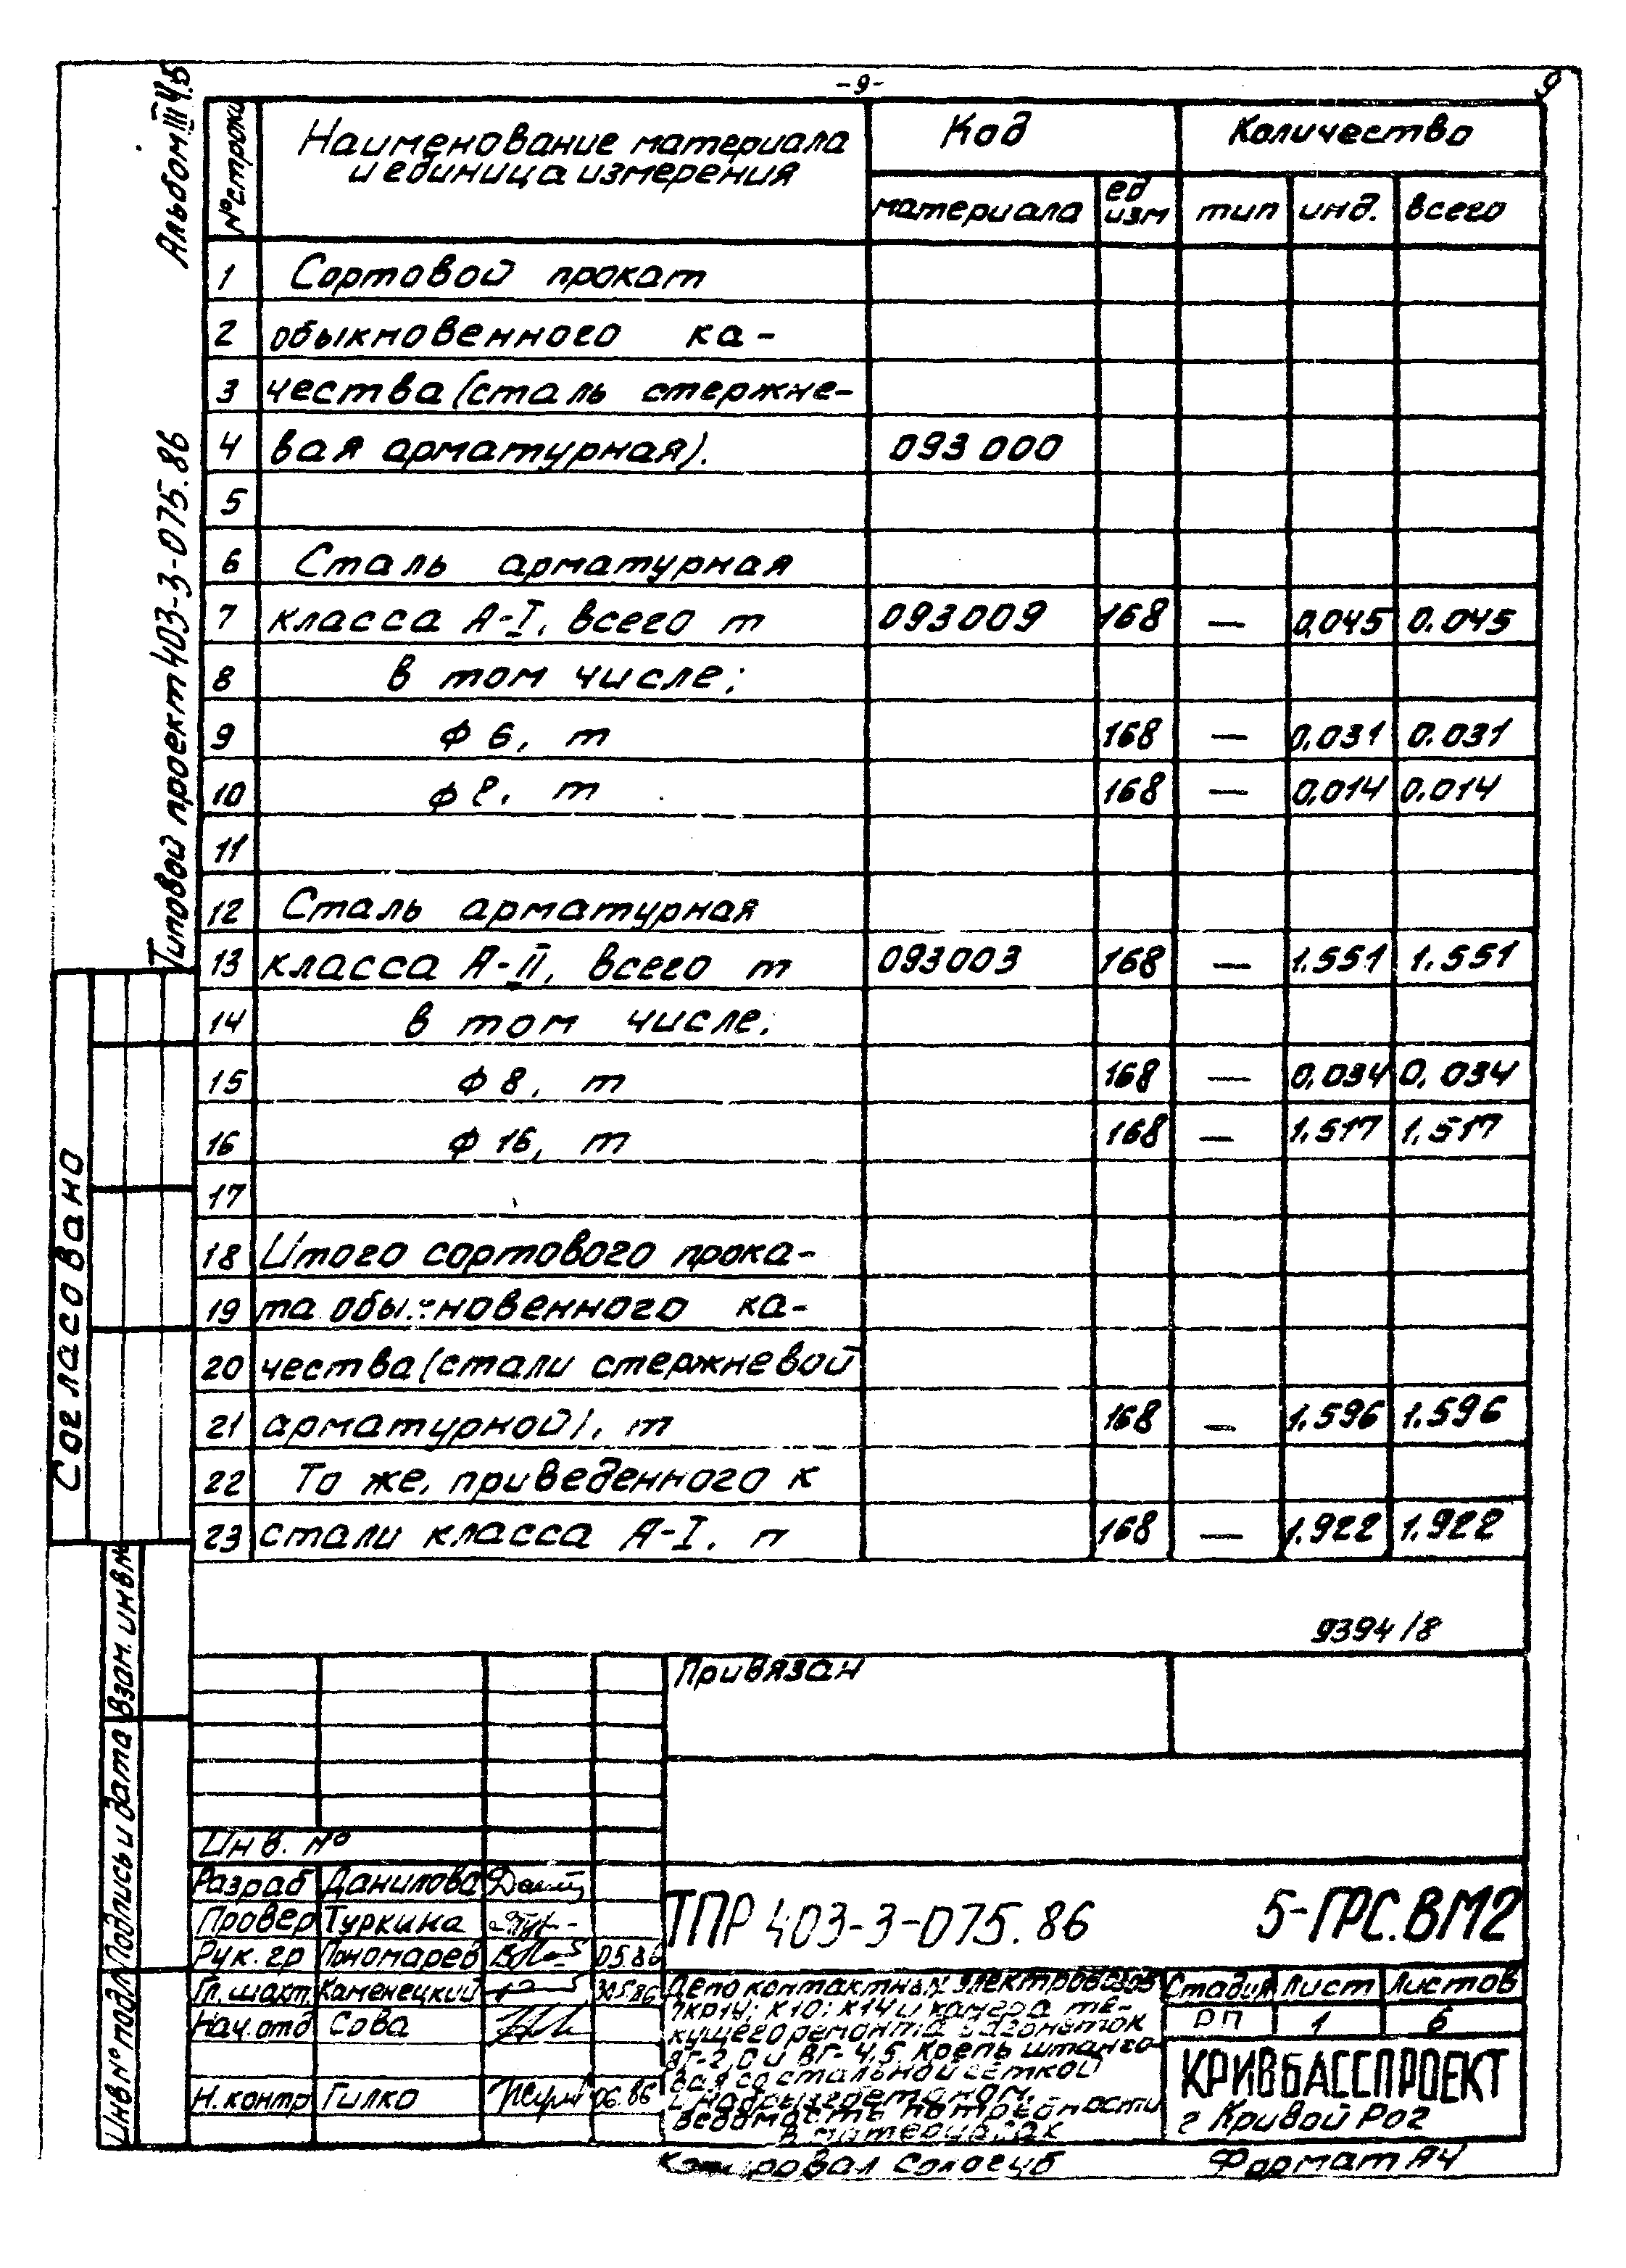 -9-
9
Альбом III ч.5
Типовой проект 403-3-075.86
№ строки
Наименование материала
и единица измерения
Код
Количество
материала
ед
изм
тип
инд.
всего
1 Сортовой прокат
2 обыкновенного ка-
3 чества (сталь стержне-
4 вая арматурная). 093000
5
6 Сталь арматурная
7 класса А-I, всего т 093009 168 — 0,045 0.045
8 в том числе:
9 ф 6, т 168 — 0.031 0.031
10 ф 8, т 168 — 0,014 0.014
11
12 Сталь арматурная
13 класса А-II, всего т 093003 168 — 1.551 1.551
14 в том числе:
15 ф 8, т 168 — 0,034 0,034
16 ф 16, т 168 — 1.517 1.517
17
18 Итого сортового прока-
19 та обыкновенного ка-
20 чества (стали стержневой
21 арматурной), т 168 — 1.596 1.596
22 То же, приведенного к
23 стали класса А-I, т 168 — 1.922 1.922
Согласовано
Взам. инв.№
Подпись и дата
Инв № подл
9394/8
Привязан
Инв. №
Разраб Данилова
Провер Туркина
Рук. гр Пономарев 05.86
Гл. шахт. Каменецкий 30.5.86
Нач. отд Сова
Н. контр Гилко 06.86
ТПР 403-3-075.86 5-ГРС.ВМ2
Депо контактных электровозов
7КР1У; К10; К14 и камера те-
кущего ремонта вагонеток
ВГ-2,0 и ВГ-4,5. Крепь штанго-
вая со стальной сеткой
и набрызгбетоном.
Ведомость потребности
в материалах
Стадия Лист Листов
РП 1 6
КРИВБАССПРОЕКТ
г Кривой Рог
Копировал Сологуб
Формат А4